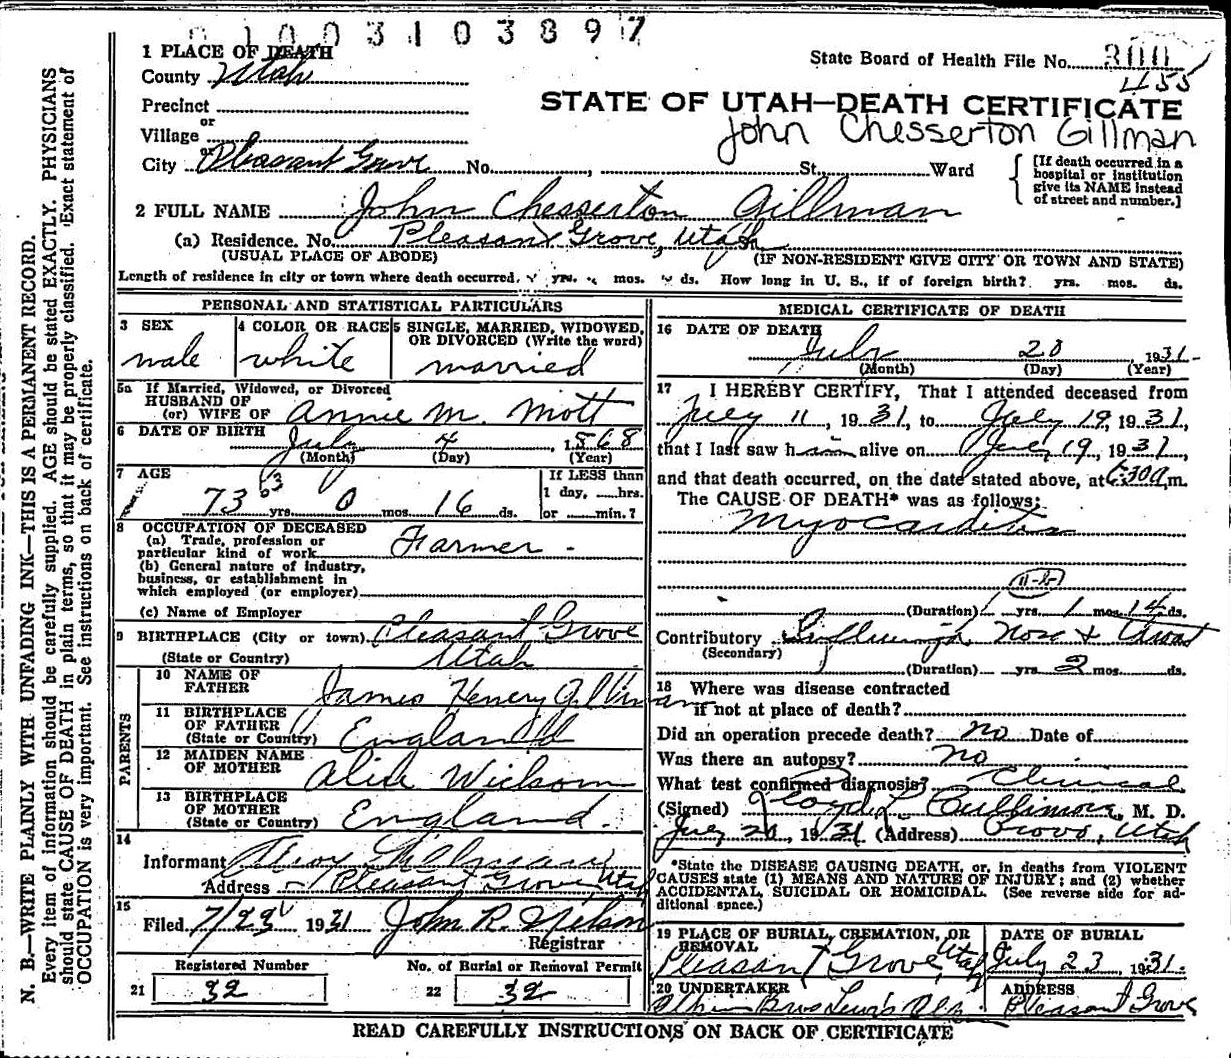 0 1 0 0 3 1 0 3 8 9 7
1 PLACE OF DEATH
County Utah
State Board of Health File No. 300
455
Precinct
or
Village
or
City Pleasant Grove No. , St. Ward
STATE OF UTAH—DEATH CERTIFICATE
John Chesserton Gillman
[If death occurred in a hospital or institution give its NAME instead of street and number.]
2 FULL NAME John Chesserton Gillman
(a) Residence. No. Pleasant Grove, Utah
(USUAL PLACE OF ABODE) (IF NON-RESIDENT GIVE CITY OR TOWN AND STATE)
Length of residence in city or town where death occurred. yrs. mos. ds. How long in U. S., if of foreign birth? yrs. mos. ds.
PERSONAL AND STATISTICAL PARTICULARS
3 SEX male
4 COLOR OR RACE white
5 SINGLE, MARRIED, WIDOWED, OR DIVORCED (Write the word) married
5a If Married, Widowed, or Divorced
HUSBAND OF
(or) WIFE OF Annie M. Mott
6 DATE OF BIRTH July 4 1868
(Month) (Day) (Year)
7 AGE 73 63 yrs. 0 mos. 16 ds.
If LESS than
1 day, hrs.
or min.?
8 OCCUPATION OF DECEASED
(a) Trade, profession or
particular kind of work Farmer -
(b) General nature of industry,
business, or establishment in
which employed (or employer)
(c) Name of Employer
9 BIRTHPLACE (City or town) Pleasant Grove
(State or Country) Utah
PARENTS
10 NAME OF
FATHER James Henery Gillman
11 BIRTHPLACE
OF FATHER
(State or Country) England
12 MAIDEN NAME
OF MOTHER Alise
13 BIRTHPLACE
OF MOTHER
(State or Country) England.
14
Informant Gillman
Address Pleasant Grove Utah
15
Filed 7/23 1931 John R. Nelson
Registrar
Registered Number
21 32
No. of Burial or Removal Permit
22 32
MEDICAL CERTIFICATE OF DEATH
16 DATE OF DEATH
July 20 1931
(Month) (Day) (Year)
17 I HEREBY CERTIFY, That I attended deceased from
July 11, 1931, to July 19, 1931,
that I last saw him alive on July 19, 1931,
and that death occurred, on the date stated above, at 6:30 a.m.
The CAUSE OF DEATH* was as follows:
Myocarditis
(Duration) 1 yrs. 1 mos. 14 ds.
Contributory Nose & throat
(Secondary)
(Duration) yrs. 2 mos. ds.
18 Where was disease contracted
if not at place of death?
Did an operation precede death? no Date of
Was there an autopsy? no
What test confirmed diagnosis? Clinical
(Signed) Lloyd L. Cullimore, M. D.
July 20, 1931 (Address) Provo, Utah
*State the DISEASE CAUSING DEATH, or, in deaths from VIOLENT
CAUSES state (1) MEANS AND NATURE OF INJURY; and (2) whether
ACCIDENTAL, SUICIDAL OR HOMICIDAL. (See reverse side for ad-
ditional space.)
19 PLACE OF BURIAL, CREMATION, OR
REMOVAL
Pleasant Grove Utah
DATE OF BURIAL
July 23 1931.
20 UNDERTAKER
Bros
ADDRESS
Pleasant Grove
READ CAREFULLY INSTRUCTIONS ON BACK OF CERTIFICATE
N. B.—WRITE PLAINLY WITH UNFADING INK—THIS IS A PERMANENT RECORD.
Every item of information should be carefully supplied. AGE should be stated EXACTLY. PHYSICIANS
should state CAUSE OF DEATH in plain terms, so that it may be properly classified. Exact statement of
OCCUPATION is very important. See instructions on back of certificate.